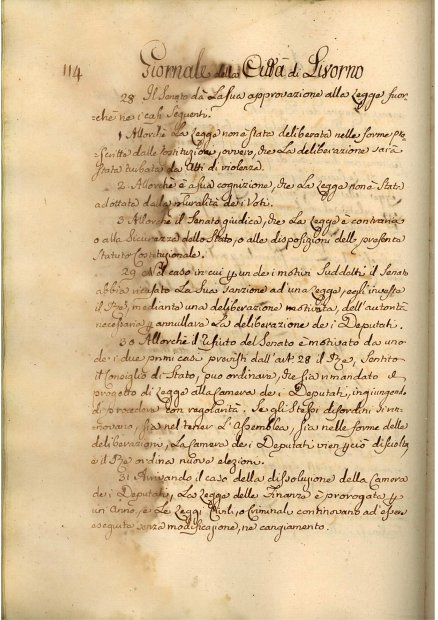 114 Giornale della Città di Livorno
28 Il Senato dà la sua approvazione alla Legge fuor
chè ne i casi seguenti.
1 Allorchè la Legge non è stata deliberata nelle forme pre
scritte dalla Costituzione, ovvero, che la deliberazione sarà
stata turbata da atti di violenza.
2 Allorchè è a sua cognizione, che la Legge non è stata
adottata dalla pluralità de i Voti.
3 Allorchè il Senato giudica, che la Legge è contraria
o alla Sicurezza dello Stato, o alle disposizioni dello presente
Statuto Costituzionale.
29 Nel caso in cui p un de i motivi suddetti, il Senato
abbia ricusato la sua Sanzione ad una Legge, egli investe
il Rè, mediante una deliberazione motivata, dell'autorità
necessaria p annullare la deliberazione de i Deputati.
30 Allorchè il rifiuto del Senato è motivato da uno
de i due primi casi previsti dall'art: 28 il Rè, sentito
il Consiglio di Stato, può ordinare, che sia rimandato il
progetto di Legge alla Camera de i Deputati, ingiungendo
di procedere con regolarità. Se gli stessi disordini si rin
novano, sia nel tener l'Assemblea, sia nelle forme delle
deliberazioni, la Camera de i Deputati vien p ciò disciolta
e il Rè ordina nuove elezioni.
31 Arrivando il caso della dissoluzione della Camera
de i Deputati, la Legge delle Finanze è prorogata p
un Anno, e le Leggi Civili, o Criminali continovano ad essere
eseguite senza modificazione, ne cangiamento.